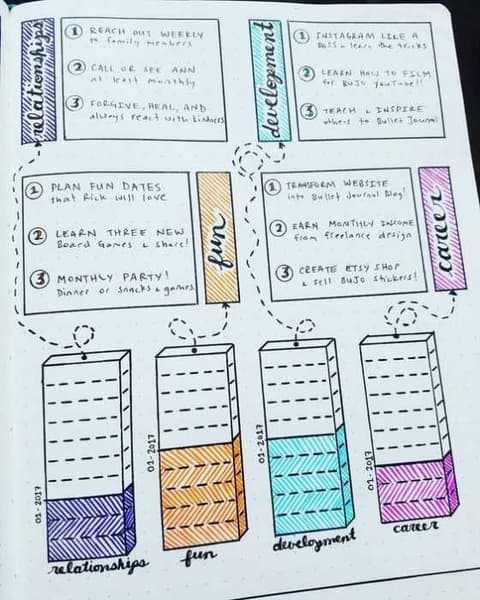 relationships
1 REACH OUT WEEKLY
to family members
2 CALL OR SEE ANN
at least monthly
3 FORGIVE, HEAL, AND
always react with kindness
development
1 INSTAGRAM LIKE A
BOSS & learn the tricks
2 LEARN HOW TO FILM
for BUJO YouTube!!
3 TEACH & INSPIRE
others to Bullet Journal
1 PLAN FUN DATES
that Rick will love
2 LEARN THREE NEW
Board Games & share!
3 MONTHLY PARTY!
Dinner or snacks & games
fun
1 TRANSFORM WEBSITE
into Bullet Journal Blog!
2 EARN MONTHLY INCOME
from freelance design
3 CREATE ETSY SHOP
& sell BUJO Stickers!
career
01-2017
relationships
01-2017
fun
01-2017
development
01-2017
career